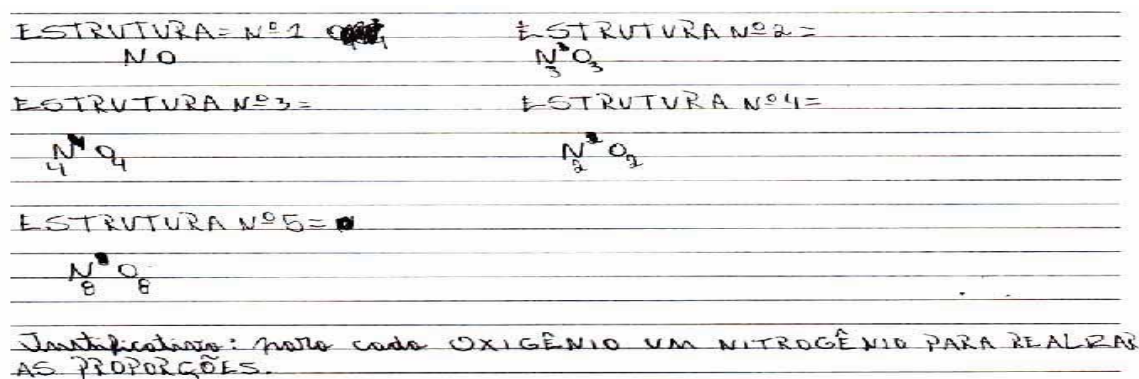 ESTRUTURA= Nº1 ESTRUTURA Nº2=
NO N3O3
ESTRUTURA Nº3= ESTRUTURA Nº4=
N4O4 N2O2
ESTRUTURA Nº5=
N8O8
Justificativa: para cada OXIGÊNIO UM NITROGÊNIO PARA REALIZAR
AS PROPORÇÕES.